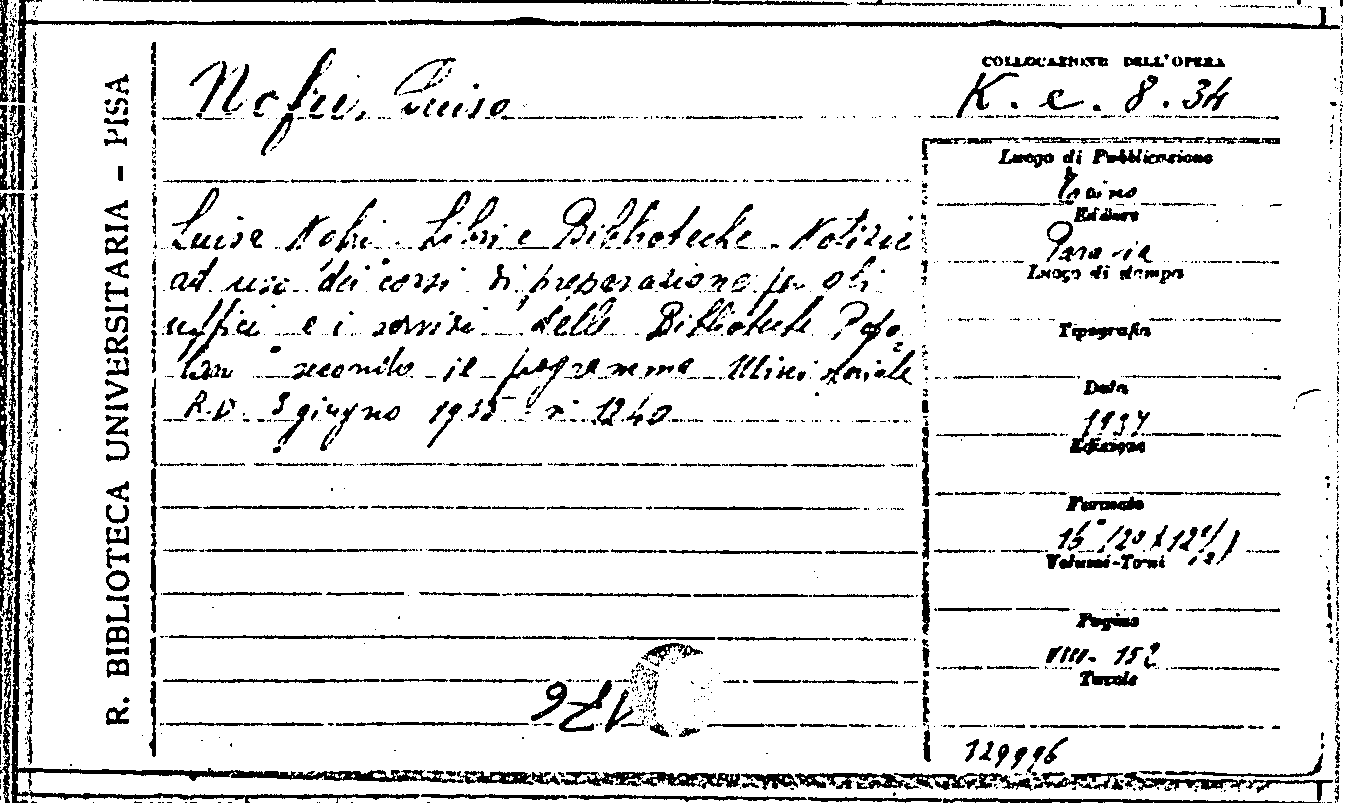 R. BIBLIOTECA UNIVERSITARIA – PISA
Nofri, Luisa
COLLOCAZIONE DELL'OPERA
K. c. 8. 34
Luisa Nofri - Libri e Biblioteche - Notizie
ad uso dei corsi di preparazione per gli
uffici e i servizi delle Biblioteche Popo-
lari secondo il programma Ministeriale
R.D. 3 giugno 1935 n. 1240
Luogo di Pubblicazione
Torino
Editore
Paravia
Luogo di stampa
Tipografia
Data
1937
Edizione
Formato
16° (20 x 12 1/2)
Volumi-Tomi
Pagine
VIII - 152
Tavole
129996